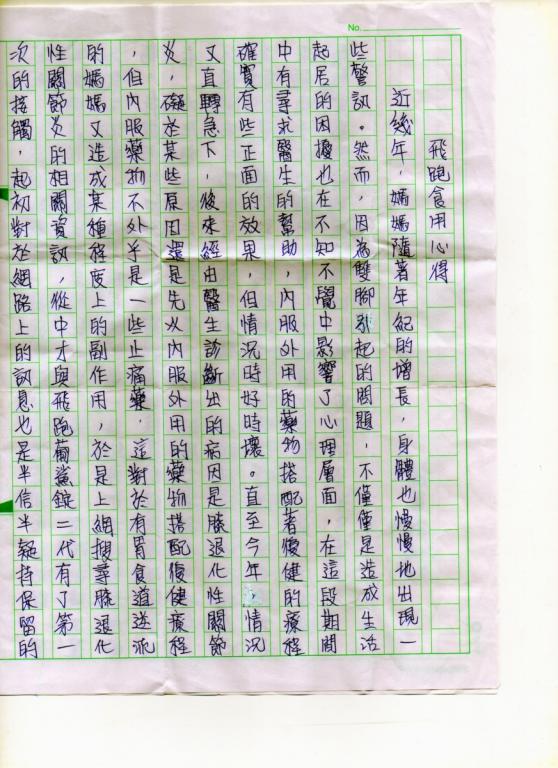 No.
飛跑食用心得
近幾年，媽媽隨著年紀的增長，身體也慢慢地出現一
些警訊。然而，因為雙腳引起的問題，不僅僅是造成生活
起居的困擾也在不知不覺中影響了心理層面，在這段期間
中有尋求醫生的幫助，內服外用的藥物搭配著復健的療程
確實有些正面的效果，但情況時好時壞。直至今年情況
又直轉急下，後來經由醫生診斷出的病因是膝退化性關節
炎，礙於某些原因還是先以內服外用的藥物搭配復健療程
，但內服藥物不外乎是一些止痛藥，這對於有胃食道逆流
的媽媽又造成某種程度上的副作用，於是上網搜尋膝退化
性關節炎的相關資訊，從中才與飛跑葡鯊錠二代有了第一
次的接觸，起初對於網路上的訊息也是半信半疑持保留的